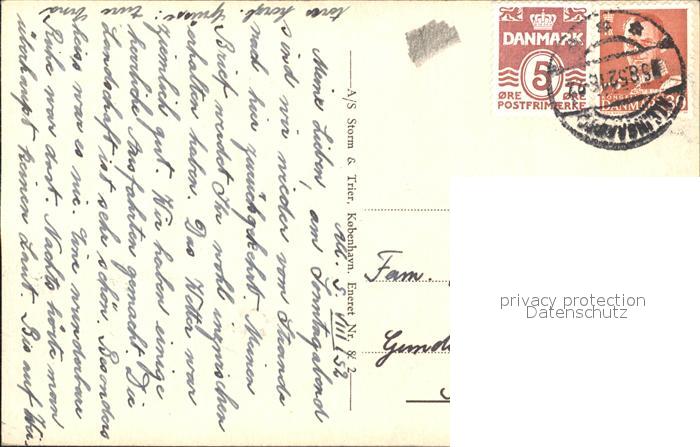 DANMARK
5
ØRE ØRE
POSTFRIMÆRKE
DANMARK
A/S Storm & Trier, København. Eneret Nr. & 2
5. VIII 52
Meine Lieben! am Sonntagabend
sind wir wieder vom Strande
nach hier zurückgekehrt. Meinen
Brief werdet Ihr wohl inzwischen
erhalten haben. Das Wetter war
ziemlich gut. Wir haben einige
herrliche Ausfahrten gemacht. Die
Landschaft ist sehr schön. Besonders
heiss war es nie. Eine wunderbare
Ruhe war dort. Nachts hörte man
überhaupt keinen Laut. Bis auf
Grüsse
Fam.
privacy protection
Datenschutz